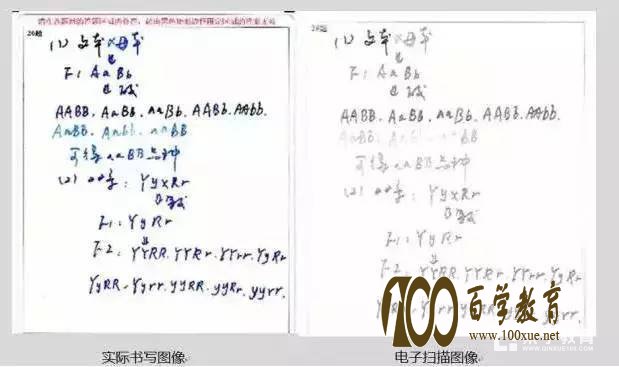 请在各题目的答题区域内作答，超出黑色矩形边框限定区域的答案无效
26题
(1) 父本×母本
F1 AaBb
AABB、AaBB、aaBb、AABb、AAbb、
AaBb、Aabb、aaBB
可得aaBB品种
(2) 亲本: YyxRr
F1: YyRr
F2: YYRR、YYRr、YYrr、YyRr
YyRR、Yyrr、yyRR、yyRr、yyrr、
实际书写图像
26题
(1) 父本×母本
F1 AaBb
AABB、AaBB、aaBb、AABb、AAbb、
AaBb、Aabb、aaBB
可得aaBB品种
(2) 亲本: YyxRr
F1: YyRr
F2: YYRR、YYRr、YYrr、YyRr
100百学教育
www.100xue.net
WWW.QINXUE100.COM
电子扫描图像